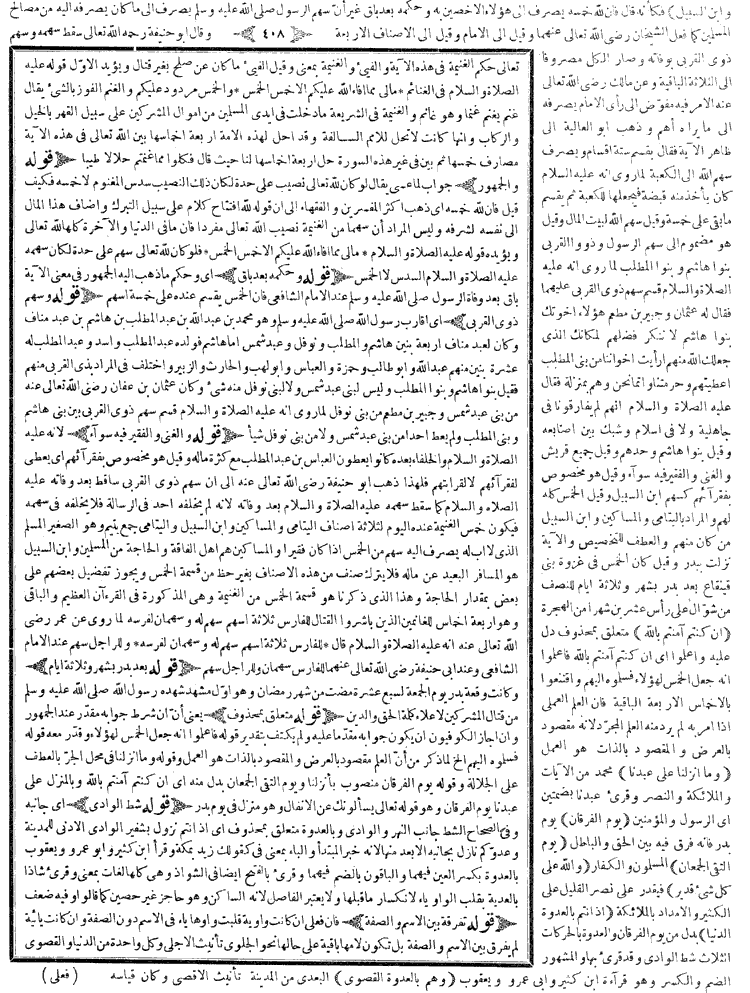 وابن السبيل) فكأنه قال فان لله خمسه يصرف الى هؤلاء الاخصين به وحكمه بعد باق غير أن سهم الرسول صلى الله عليه وسلم يصرف الى ما كان يصرفه اليه من مصالح
المسلمين كما فعل الشيخان رضى الله تعالى عنهما وقيل الى الامام وقيل الى الاصناف الاربعة ﴿ ٤٠٨ ﴾ وقال ابو حنيفة رحمه الله تعالى سقط سهمه وسهم
ذوى القربى بوفاته وصار الكل مصروفا
الى الثلاثة الباقية وعن مالك رضى الله تعالى
عنه الامر فيه مفوّض الى رأى الامام يصرفه
الى ما يراه أهم وذهب ابو العالية الى
ظاهر الآية فقال يقسم ستة اقسام ويصرف
سهم الله الى الكعبة لما روى انه عليه السلام
كان يأخذ منه قبضة فيجعلها للكعبة ثم يقسم
مابقى على خمسة وقيل سهم الله لبيت المال وقيل
هو مضموم الى سهم الرسول وذووا القربى
بنوا هاشم وبنوا المطلب لما روى انه عليه
الصلاة والسلام قسم سهم ذوى القربى عليهما
فقال له عثمان وجبير بن مطعم هؤلاء اخوتك
بنوا هاشم لا ننكر فضلهم لمكانك الذى
جعلك الله منهم أرأيت اخواننا من بنى المطلب
اعطيتهم وحرمتنا وانما نحن وهم بمنزلة فقال
عليه الصلاة والسلام انهم لم يفارقونا فى
جاهلية ولا فى اسلام وشبك بين اصابعه
وقيل بنوا هاشم وحدهم وقيل جميع قريش
والغنى والفقير فيه سوآء وقيل هو مخصوص
بفقرآئهم كسهم ابن السبيل وقيل الخمس كله
لهم والمراد باليتامى والمساكين وابن السبيل
من كان منهم والعطف للتخصيص والآية
نزلت ببدر وقيل كان الخمس فى غزوة بنى
قينقاع بعد بدر بشهر وثلاثة ايام للنصف
من شوّال على رأس عشرين شهرا من الهجرة
(ان كنتم آمنتم بالله) متعلق بمحذوف دل
عليه واعلموا اى ان كنتم آمنتم بالله فاعلموا
انه جعل الخمس لهؤلاء فسلموه اليهم واقتنعوا
بالاخماس الاربعة الباقية فان العلم العملى
اذا امر به لم يرد منه العلم المجرّد لانه مقصود
بالعرض والمقصود بالذات هو العمل
(وما انزلنا على عبدنا) محمد من الآيات
والملائكة والنصر وقرئ عبدنا بضمتين
اى الرسول والمؤمنين (يوم الفرقان) يوم
بدر فانه فرق فيه بين الحق والباطل (يوم
التقى الجمعان) المسلمون والكفار (والله على
كل شئ قدير) فيقدر على نصر القليل على
الكثير والامداد بالملائكة (اذ انتم بالعدوة
الدنيا) بدل من يوم الفرقان والعدوة بالحركات
الثلاث شط الوادى وقد قرئ بها والمشهور
الضم والكسر وهو قرآءة ابن كثير وابى عمرو ويعقوب (وهم بالعدوة القصوى) البعدى من المدينة تأنيث الاقصى وكان قياسه (فعلى)
تعالى حكم الغنيمة فى هذه الآية والفئ والغنيمة بمعنى وقيل الفئ ما كان عن صلح بغير قتال ويؤيد الاوّل قوله عليه
الصلاة والسلام فى الغنائم * مالى مما افاء الله عليكم الا الخمس الخمس * والخمس مردود عليكم والغنم الفوز بالشئ يقال
غنم يغنم غنما وهو غانم والغنيمة فى الشريعة ما دخلت فى ايدى المسلمين من اموال المشركين على سبيل القهر بالخيل
والركاب وانها كانت لا تحل للامم السالفة وقد احل لهذه الامة اربعة اخماسها بين الله تعالى فى هذه الآية
مصارف خمسها ثم بين فى غير هذه السورة حل اربعة اخماسها لنا حيث قال فكلوا مما غنمتم حلالا طيبا ﴿ قوله
والجمهور ﴾ جواب لما عسى يقال لو كان لله تعالى نصيب على حدة لكان ذلك النصيب سدس المغنوم لا خمسه فكيف
قيل فان لله خمسه اى ذهب اكثر المفسرين والفقهاء الى ان قوله لله افتتاح كلام على سبيل التبرك واضاف هذا المال
الى نفسه لشرفه وليس المراد أن سهما من الغنيمة نصيب الله تعالى مفردا فان ما فى الدنيا والآخرة كلها لله تعالى
ويؤيده قوله عليه الصلاة والسلام * مالى مما افاء الله عليكم الا الخمس الخمس * فلو كان لله تعالى سهم على حدة لكان سهمه
عليه الصلاة والسلام السدس لا الخمس ﴿ قوله وحكمه بعد باق ﴾ اى وحكم ما ذهب اليه الجمهور فى معنى الآية
باق بعد وفاة الرسول صلى الله عليه وسلم عند الامام الشافعى فان الخمس يقسم عنده على خمسة اسهم ﴿ قوله وسهم
ذوى القربى ﴾ اى اقارب رسول الله صلى الله عليه وسلم وهو محمد بن عبد الله بن عبد المطلب بن هاشم بن عبد مناف
وكان لعبد مناف اربعة بنين هاشم والمطلب ونوفل وعبد شمس اما هاشم فولده عبد المطلب واسد وعبد المطلب له
عشرة بنين منهم عبد الله وابو طالب وحمزة والعباس وابو لهب والحارث والزبير واختلف فى المراد بذى القربى منهم
فقيل بنوا هاشم وبنوا المطلب وليس لبنى عبد شمس ولا لبنى نوفل منه شئ وكان عثمان بن عفان رضى الله تعالى عنه
من بنى عبد شمس وجبير بن مطعم من بنى نوفل لما روى انه عليه الصلاة والسلام قسم سهم ذوى القربى بين بنى هاشم
وبنى المطلب ولم يعط احدا من بنى عبد شمس ولا من بنى نوفل شيأ ﴿ قوله والغنى والفقير فيه سوآء ﴾ لانه عليه
الصلاة والسلام والخلفاء بعده كانوا يعطون العباس بن عبد المطلب مع كثرة ماله وقيل هو مخصوص بفقرآئهم اى يعطى
لفقرآئهم لا لقرابتهم فلهذا ذهب ابو حنيفة رضى الله تعالى عنه الى ان سهم ذوى القربى ساقط بعد وفاته عليه
الصلاة والسلام كما سقط سهمه عليه الصلاة والسلام بعد وفاته لانه لم يخلفه احد فى الرسالة فلا يخلفه فى سهمه
فيكون خمس الغنيمة عنده اليوم لثلاثة اصناف اليتامى والمساكين وابن السبيل واليتامى جمع يتيم وهو الصغير المسلم
الذى لا اب له يصرف اليه سهم من الخمس اذا كان فقيرا والمساكين هم اهل الفاقة والحاجة من المسلمين وابن السبيل
هو المسافر البعيد عن ماله فلا يترك صنف من هذه الاصناف بغير حظ من قسمة الخمس ويجوز تفضيل بعضهم على
بعض بمقدار الحاجة وهذا الذى ذكرنا هو قسمة الخمس من الغنيمة وهى المذكورة فى القرءآن العظيم والباقى
وهو اربعة اخماس للغانمين الذين باشروا القتال للفارس ثلاثة اسهم سهم له وسهمان لفرسه لما روى عن عمر رضى
الله تعالى عنه انه عليه الصلاة والسلام قال * للفارس ثلاثة اسهم سهم له وسهمان لفرسه * وللراجل سهم عند الامام
الشافعى وعند ابى حنيفة رضى الله تعالى عنهما للفارس سهمان وللراجل سهم ﴿ قوله بعد بدر بشهر وثلاثة ايام ﴾
وكانت وقعة بدر يوم الجمعة لسبع عشرة مضت من شهر رمضان وهو اوّل مشهد شهده رسول الله صلى الله عليه وسلم
من قتال المشركين لاعلاء كلمة الحق والدين ﴿ قوله متعلق بمحذوف ﴾ يعنى أن ان شرط جوابه مقدّر عند الجمهور
وان اجاز الكوفيون ان يكون جوابه مقدّما عليه ولم يكتف بتقدير قوله فاعلموا انه جعل الخمس لهؤلاء وقدر معه قوله
فسلموه اليهم الخ لما ذكر من أن العلم مقصود بالعرض والمقصود بالذات هو العمل وقوله وما انزلنا فى محل الجرّ بالعطف
على الجلالة وقوله يوم الفرقان منصوب بأنزلنا ويوم التقى الجمعان بدل منه اى ان كنتم آمنتم بالله وبالمنزل على
عبدنا يوم الفرقان وهو قوله تعالى يسألونك عن الانفال وهو منزل فى يوم بدر ﴿ قوله شط الوادى ﴾ اى جانبه
وفى الصحاح الشط جانب النهر والوادى وبالعدوة متعلق بمحذوف اى اذ انتم نزول بشفير الوادى الادنى للمدينة
وعدوّكم نازل بجانبه الابعد منها لانه خبر المبتدأ والباء بمعنى فى كقولك زيد بمكة وقرأ ابن كثير وابو عمرو ويعقوب
بالعدوة بكسر العين فيهما والباقون بالضم فيهما وقرئ بالفتح ايضا فى الشواذ وهى كلها لغات بمعنى وقرئ شاذا
بالعدية بقلب الواو ياء لانكسار ما قبلها ولا يعتبر الفاصل لانه الساكن وهو حاجز غير حصين كما قالوا فيه ضعف
﴿ قوله تفرقة بين الاسم والصفة ﴾ فان فعلى ان كانت واوية قلبت واوها ياء فى الاسم دون الصفة وان كانت يائية
لم يفرق بين الاسم والصفة بل تكون لامها باقية على حالها نحو الجلوى تأنيث الاجلى وكل واحدة من الدنيا والقصوى